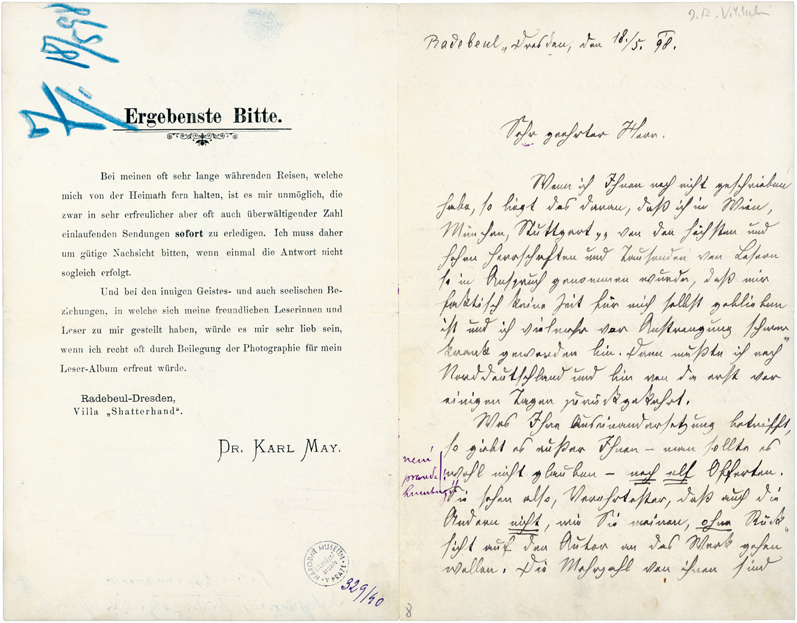 7/. 18/5 98
Ergebenste Bitte.
Bei meinen oft sehr lange währenden Reisen, welche
mich von der Heimath fern halten, ist es mir unmöglich, die
zwar in sehr erfreulicher aber oft auch überwältigender Zahl
einlaufenden Sendungen sofort zu erledigen. Ich muss daher
um gütige Nachsicht bitten, wenn einmal die Antwort nicht
sogleich erfolgt.
Und bei den innigen Geistes- und auch seelischen Be-
ziehungen, in welche sich meine freundlichen Leserinnen und
Leser zu mir gestellt haben, würde es mir sehr lieb sein,
wenn ich recht oft durch Beilegung der Photographie für mein
Leser-Album erfreut würde.
Radebeul-Dresden,
Villa „Shatterhand“.
Dr. Karl May.
NÁRODNÍ MUSEUM V PRAZE
329/40
Radebeul-Dresden, den 18./5. 98.
Sehr geehrter Herr.
Wenn ich Ihnen noch nicht geschrieben
habe, so liegt das daran, daß ich in Wien,
München, Stuttgart pp von den höchsten und
hohen Herrschaften und Tausenden von Lesern
so in Anspruch genommen wurde, daß mir
faktisch keine Zeit für mich selbst geblieben
ist und ich vielmehr vor Anstrengung schwer
krank geworden bin. Dann mußte ich nach
Norddeutschland und bin von da erst vor
einigen Tagen zurückgekehrt.
Was Ihre Auseinandersetzung betrifft,
so giebt es außer Ihnen – man sollte es
wohl nicht glauben – noch elf Offerten.
není
Sie sehen also, Verehrtester, daß auch die
Andern nicht, wie Sie meinen, ohne Rück-
sicht auf den Autor an das Werk gehen
wollen. Die Mehrzahl von ihnen sind
8